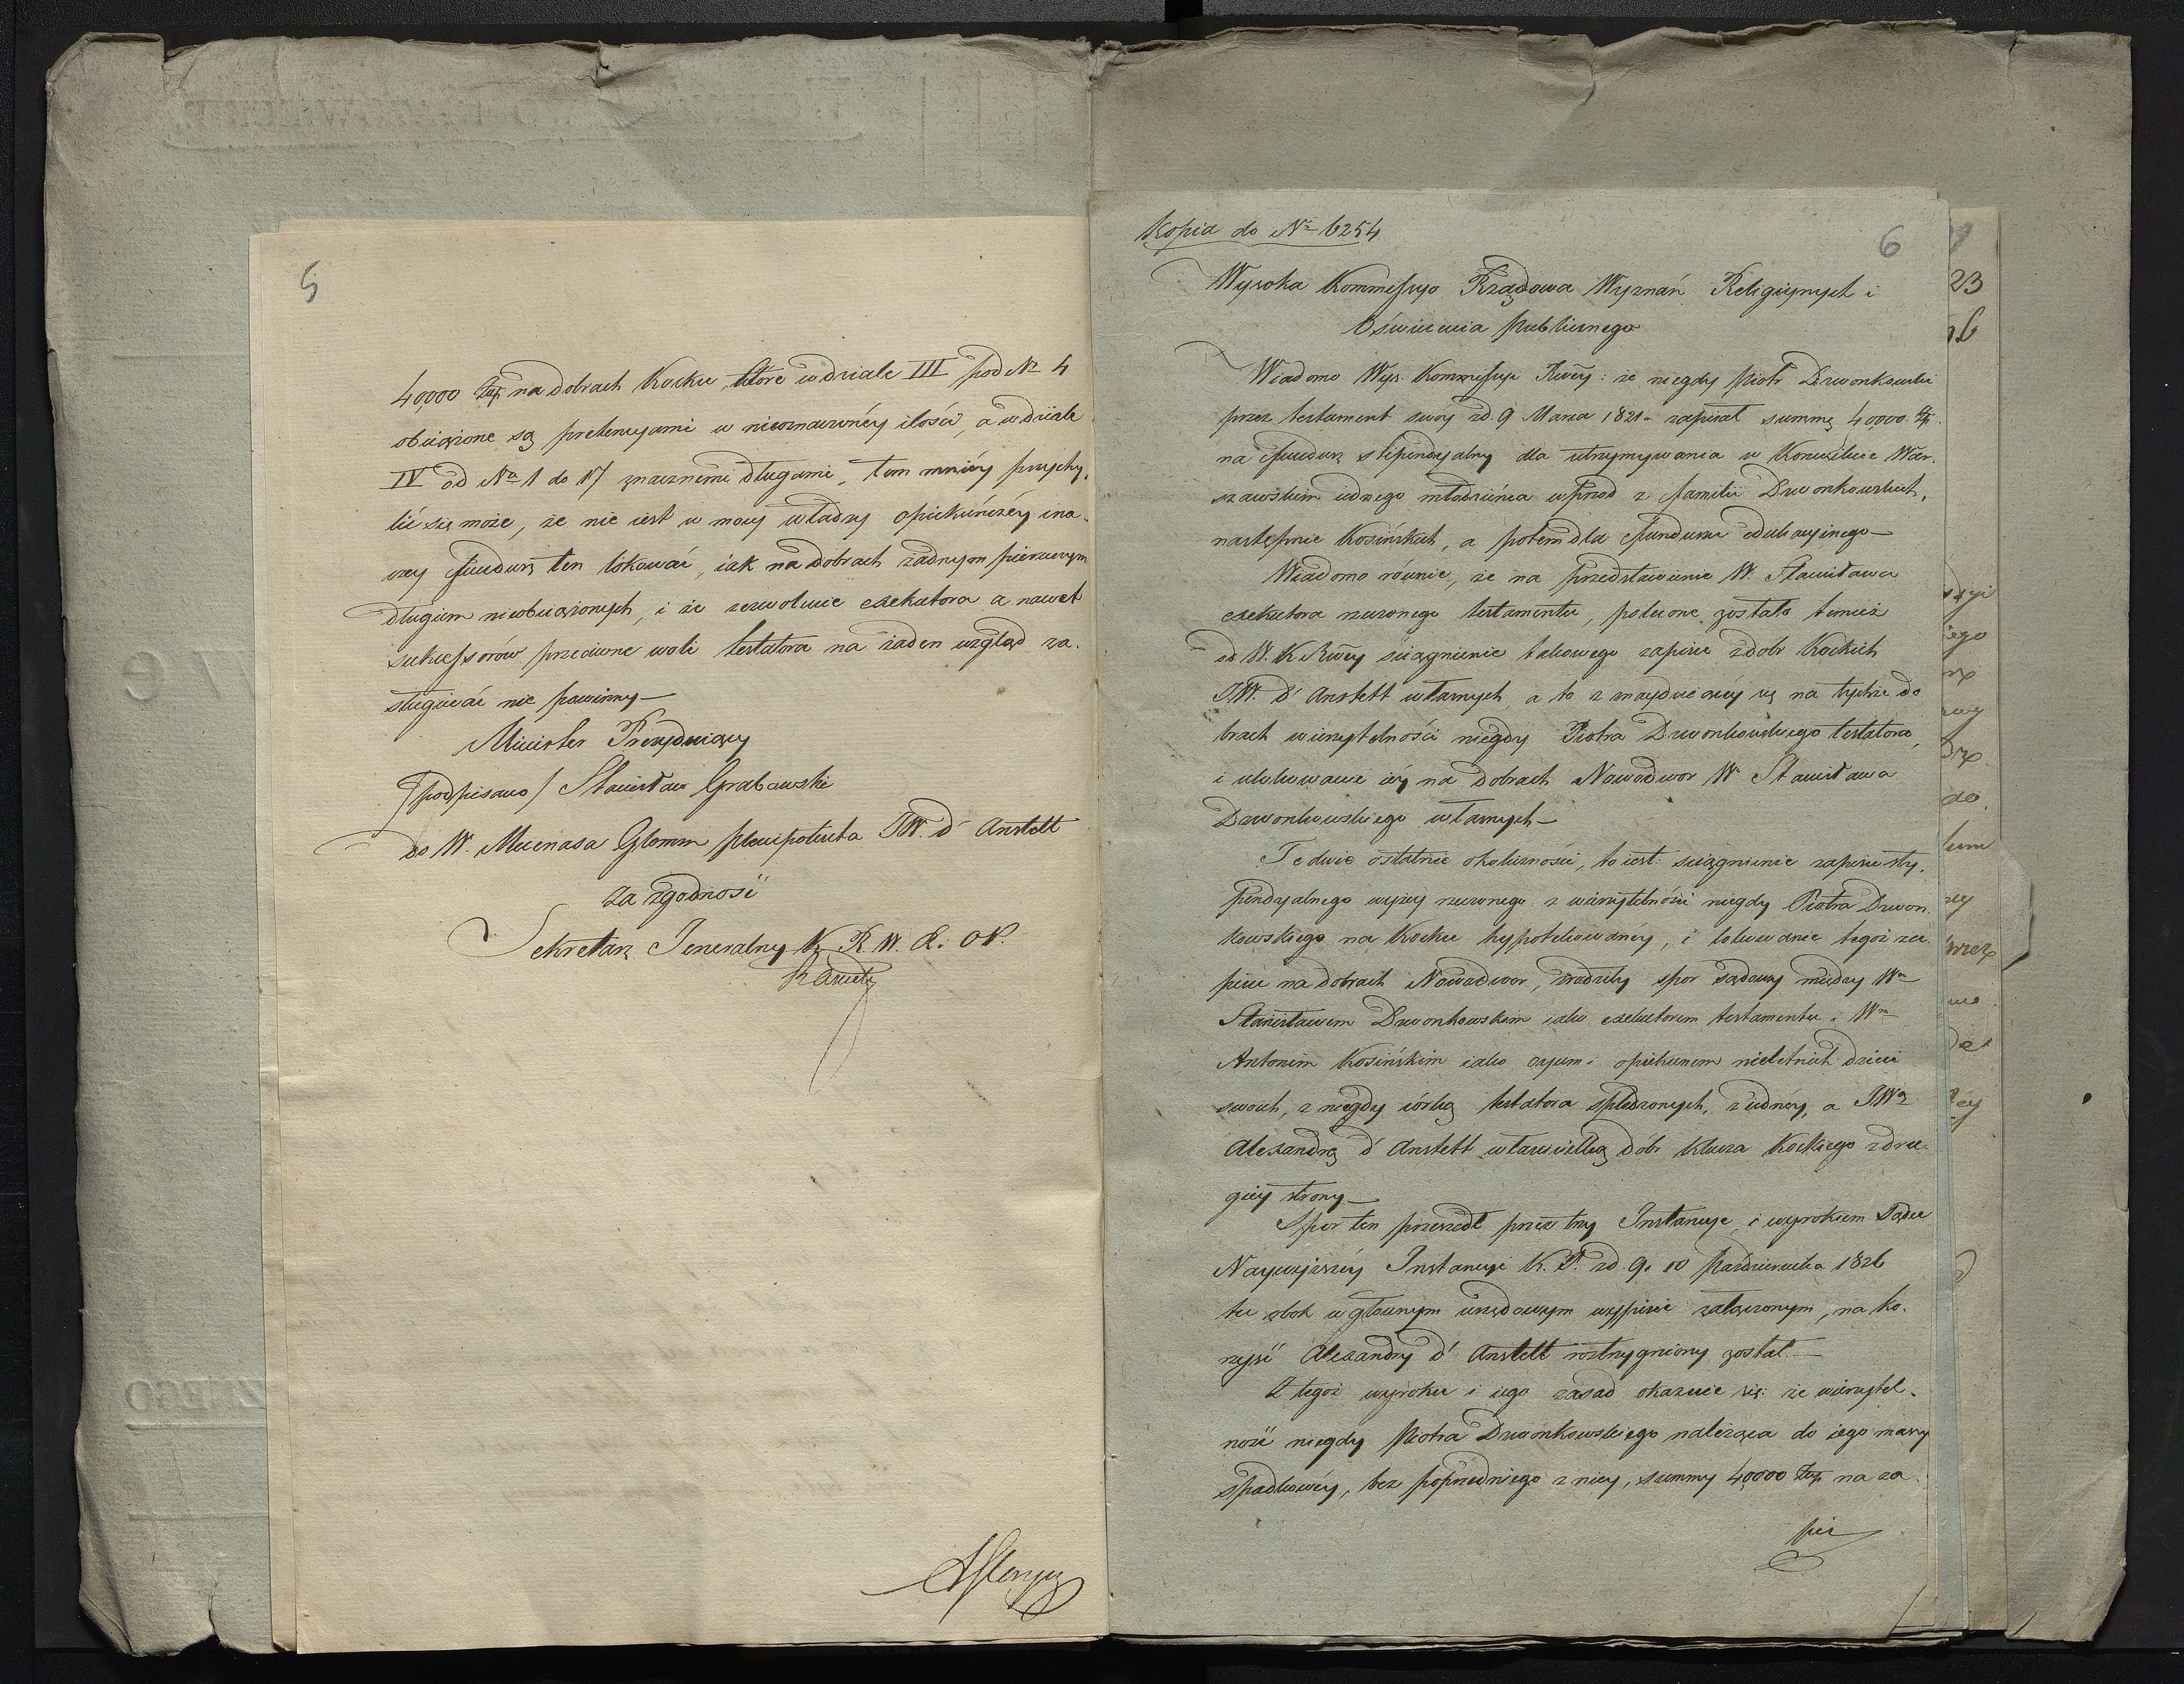 5
40,000 Złp na dobrach Kocku, które w dziale III pod Nr 4
obciążone są pretensyami w nieoznaczonéy ilości, a w dziale
IV od Nr 1 do 17 znacznemi długami, tem mniéy przychy-
lić się może, że nie iest w mocy władzy opiekuńczéy ina-
czey fundusz ten lokować, iak na dobrach żadnym pierwszym
długiem nieobciążonych, i że zezwolenie exekutora a nawet
sukcessorów przeciwne woli testatora na żaden wzgląd za-
sługiwać nie powinny—
Minister Prezyduiący
/podpisano/ Stanisław Grabowski
do W. Mecenasa Glomm plenipotenta JW. d'Anstett
Za zgodność
Sekretarz Jeneralny K. R. W. R. i O. P.
Kopia do Nr 6254
6
Wysoka Kommissyo Rządowa Wyznań Religiynych i
Oświecenia Publicznego
Wiadomo Wys. Kommissyi Rwéy: że niegdy Piotr Dzwonkowski
przez testament swóy z d. 9 Marca 1821 r. zapisał summę 40,000 Złp.
na fundusz stipendyalny dla utrzymywania w Konwikcie War-
szawskim iednego młodzieńca wprzod z familii Dzwonkowskich,
następnie Kosińskich, a potem dla funduszu edukacyinego—
Wiadomo równie, że na przedstawienie W. Stanisława
exekutora rzeczonego testamentu, polecone zostało temuż
od W. K. Rwéy ściągnienie takowego zapisu z dobr Kockich
JW. d'Anstett własnych, a to z znayduiącéy się na tychże do-
brach wierzytelności niegdy Piotra Dzwonkowskiego testatora,
i ulokowanie iéy na dobrach Nowodwor W. Stanisława
Dzwonkowskiego własnych—
Te dwie ostatnie okoliczności, to iest: ściągnienie zapisu sty-
pendyalnego wyżey rzeczonego z wierzytelności niegdy Piotra Dzwon-
kowskiego na Kocku hypotekowanéy, i lokowanie tegoż za-
pisu na dobrach Nowodwor, zrodziły spor sądowy między Wm
Stanisławem Dzwonkowskim iako exekutorem testamentu i Wm
Antonim Kosińskim iako oycem i opiekunem nieletnich dzieci
swoich, z niegdy córką testatora spłodzonych, z iednéy, a JWą
Alexandrą d'Anstett właścicielką dóbr klucza Kockiego z dru-
giéy strony—
Spor ten przeszedł przez trzy Instancye, i wyrokiem Sądu
Naywyższéy Instancyi K. P. z d. 9. 10 Października 1826
tu obok w głownym urzędowym wypisie załączonym, na ko-
rzyść Alexandry d'Anstett rostrzygniony został.—
Z tegoż wyroku i iego zasad okazuie się: że wierzytel-
ność niegdy Piotra Dzwonkowskiego należąca do iego massy
spadkowéy, bez poprzedniego z niey, summy 40,000 Złp na za-
pis